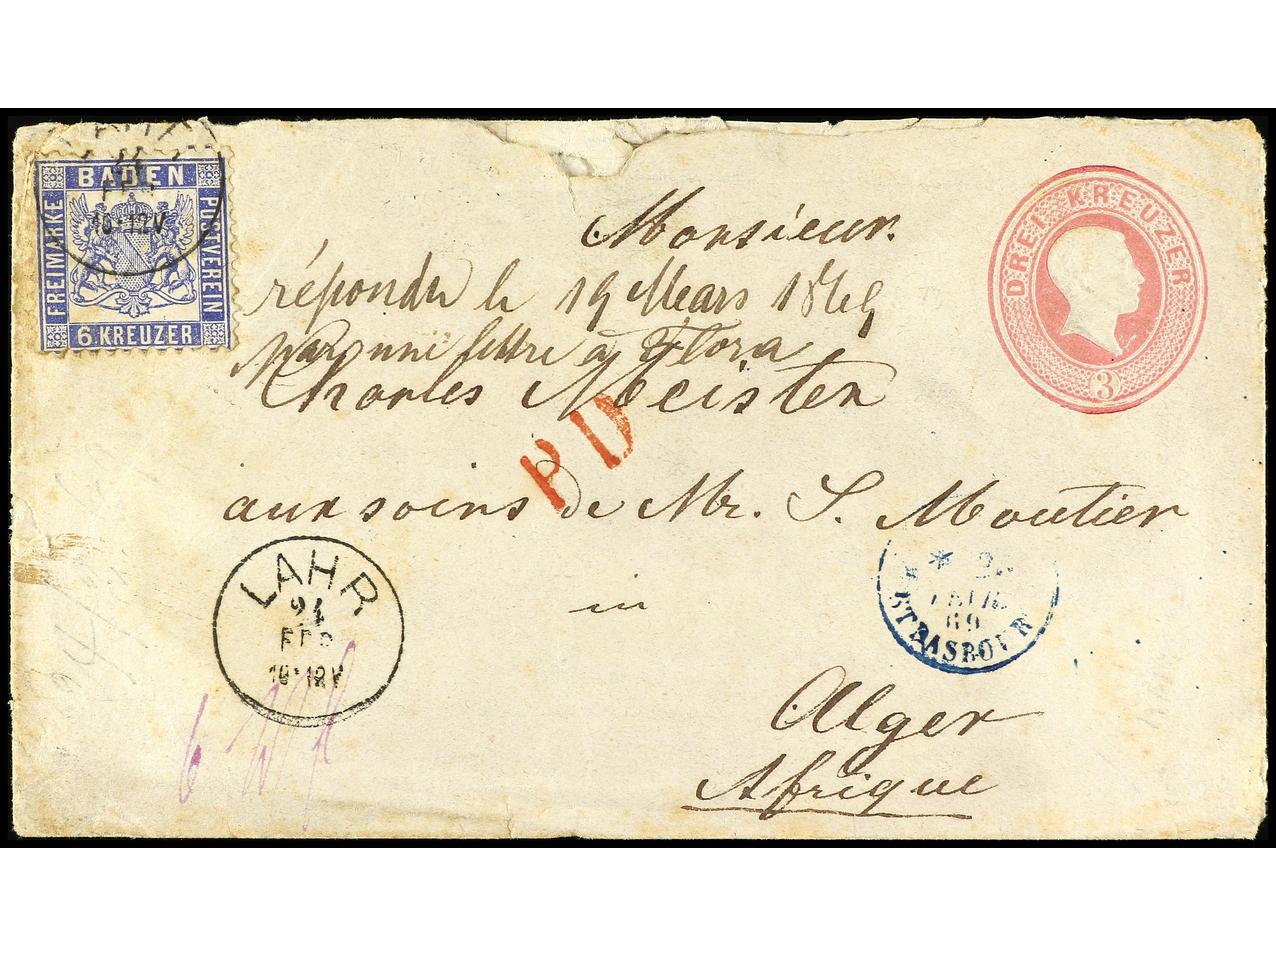 BADEN
FREIMARKE
POSTVEREIN
6 KREUZER
10-12V
DREI KREUZER
3
Monsieur.
répondu le 19 Mars 1869
par une lettre à Flora
Charles Meister
PD
aux soins de Mr. S. Moutier
in
Alger
Afrique
LAHR
24
FEB
10-12V
STRASBOUR
69
6